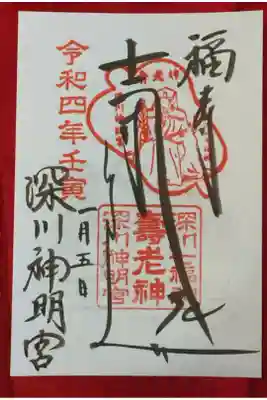 福寿
深川七福神
壽老神
深川神明宮
令和四年壬寅
一月五日
深川神明宮